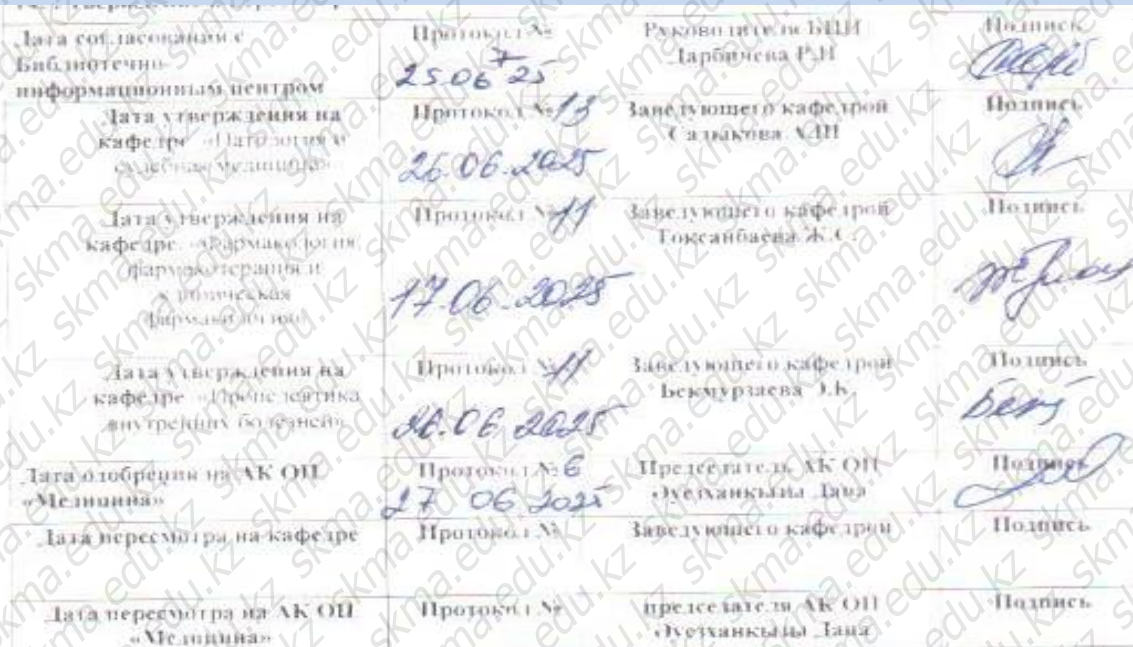 Дата согласования с
Библиотечно-
информационным центром
Протокол №
7
25.06 25
Руководителя БИЦ
Дарбичева Р.И
Подпись
Дата утверждения на
кафедре «Патология и
судебная медицина»
Протокол №13
26.06.2025
Заведующего кафедрой
Садыкова
Подпись
Дата утверждения на
кафедре «Фармакология,
фармакотерапия и
клиническая
фармакология»
Протокол №11
17.06.2025
Заведующего кафедрой
Токсанбаева Ж.С.
Подпись
Дата утверждения на
кафедре «Пропедевтика
внутренних болезней»
Протокол №11
26.06.2025
Заведующего кафедрой
Бекмурзаева Э.К.
Подпись
Дата одобрения на АК ОП
«Медицина»
Протокол № 6
27 06 2025
Председатель АК ОП
Әуезханқызы Дана
Подпись
Дата пересмотра на кафедре
Протокол №
Заведующего кафедрой
Подпись
Дата пересмотра на АК ОП
«Медицина»
Протокол №
председателя АК ОП
Әуезханқызы Дана
Подпись
skma.edu.kz